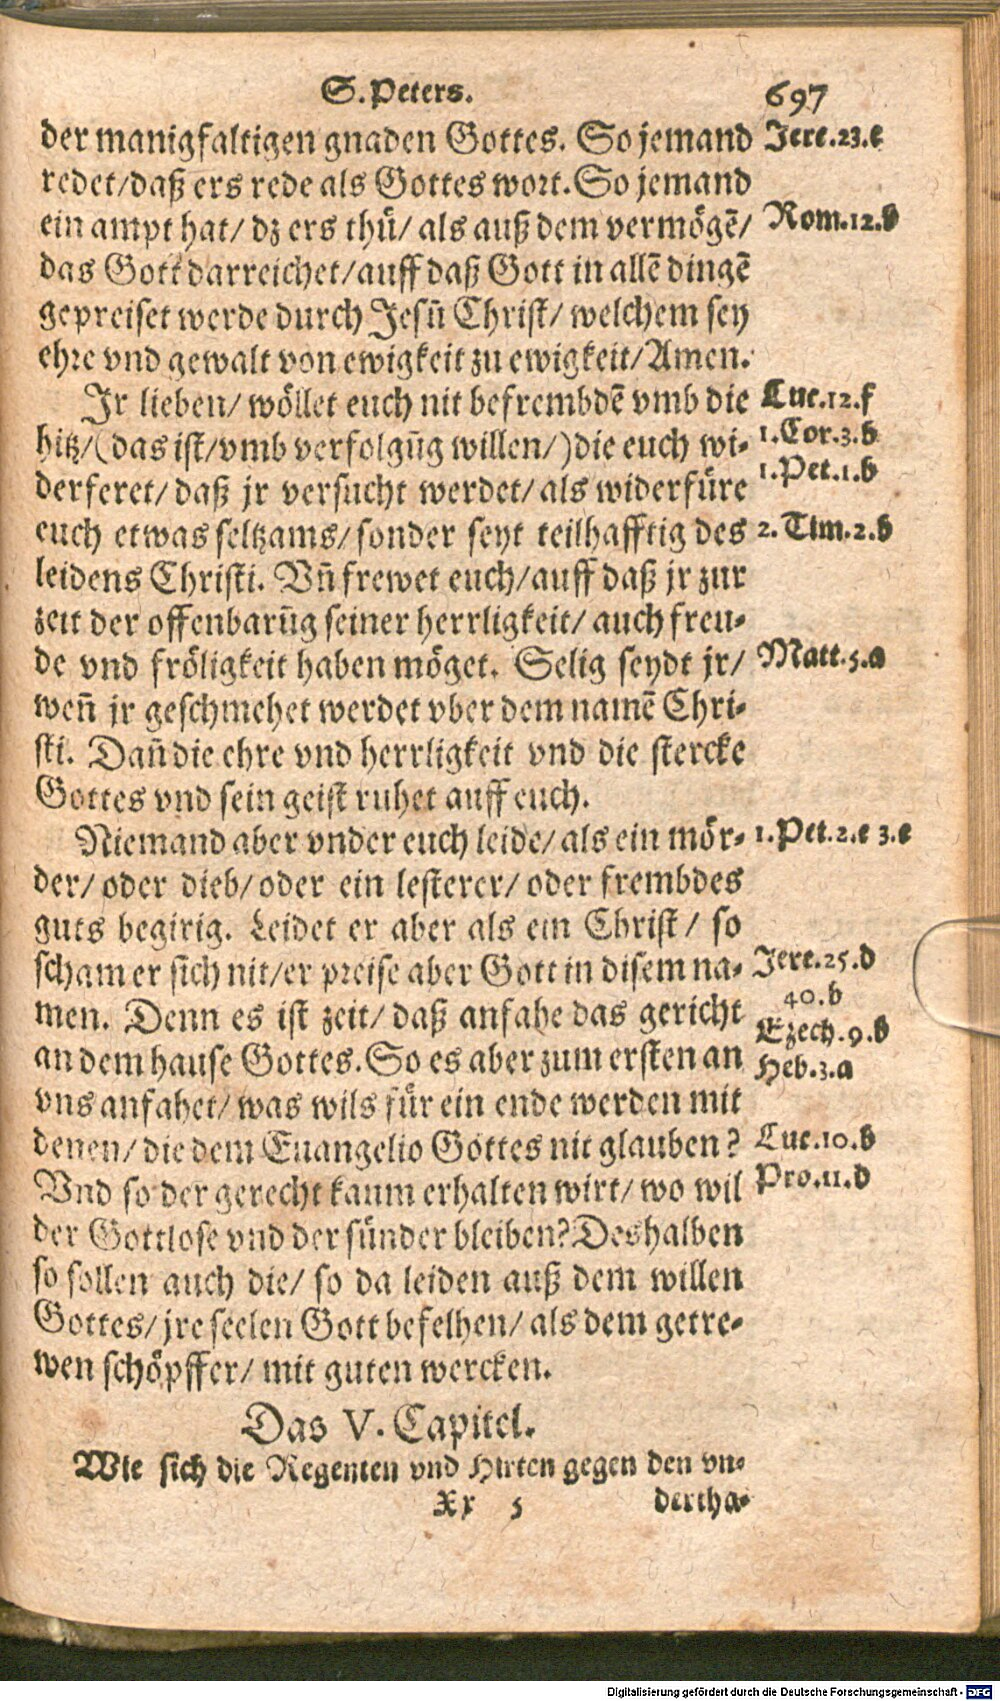 S. Peters. 697
der manigfaltigen gnaden Gottes. So jemand Jere.23.e
redet/daß ers rede als Gottes wort. So jemand
ein ampt hat/ dz ers thů/ als auß dem vermögẽ/ Rom.12.b
das Gott darreichet/auff daß Gott in allẽ dingẽ
gepreiset werde durch Jesū Christ/ welchem sey
ehre vnd gewalt von ewigkeit zu ewigkeit/Amen.
Jr lieben/ wöllet euch nit befrembdẽ vmb die Luc.12.f
hitz/(das ist/vmb verfolgūg willen/)die euch wi- 1.Cor.3.b
derferet/ daß jr versucht werdet/ als widerfüre 1.Pet.1.b
euch etwas seltzams/ sonder seyt teilhafftig des 2.Tim.2.b
leidens Christi. Vñ frewet euch/auff daß jr zur
zeit der offenbarūg seiner herrligkeit/ auch freu-
de vnd fröligkeit haben möget. Selig seydt jr/ Matt.5.a
weñ jr geschmehet werdet vber dem namẽ Chri-
sti. Dañ die ehre vnd herrligkeit vnd die stercke
Gottes vnd sein geist ruhet auff euch.
Niemand aber vnder euch leide/ als ein mör- 1.Pet.2.e 3.e
der/ oder dieb/ oder ein lesterer/ oder frembdes
guts begirig. Leidet er aber als ein Christ/ so
scham er sich nit/er preise aber Gott in disem na- Jere.25.d
men. Denn es ist zeit/ daß anfahe das gericht 40.b
Ezech.9.b
an dem hause Gottes. So es aber zum ersten an Heb.3.a
vns anfahet/ was wils für ein ende werden mit
denen/ die dem Euangelio Gottes nit glauben? Luc.10.b
Vnd so der gerecht kaum erhalten wirt/ wo wil Pro.11.d
der Gottlose vnd der sünder bleiben? Deshalben
so sollen auch die/ so da leiden auß dem willen
Gottes/ jre seelen Gott befelhen/ als dem getre-
wen schöpffer/ mit guten wercken.
Das V. Capitel.
Wie sich die Regenten vnd Hirten gegen den vn-
Xx 5 dertha-
Digitalisierung gefördert durch die Deutsche Forschungsgemeinschaft - DFG